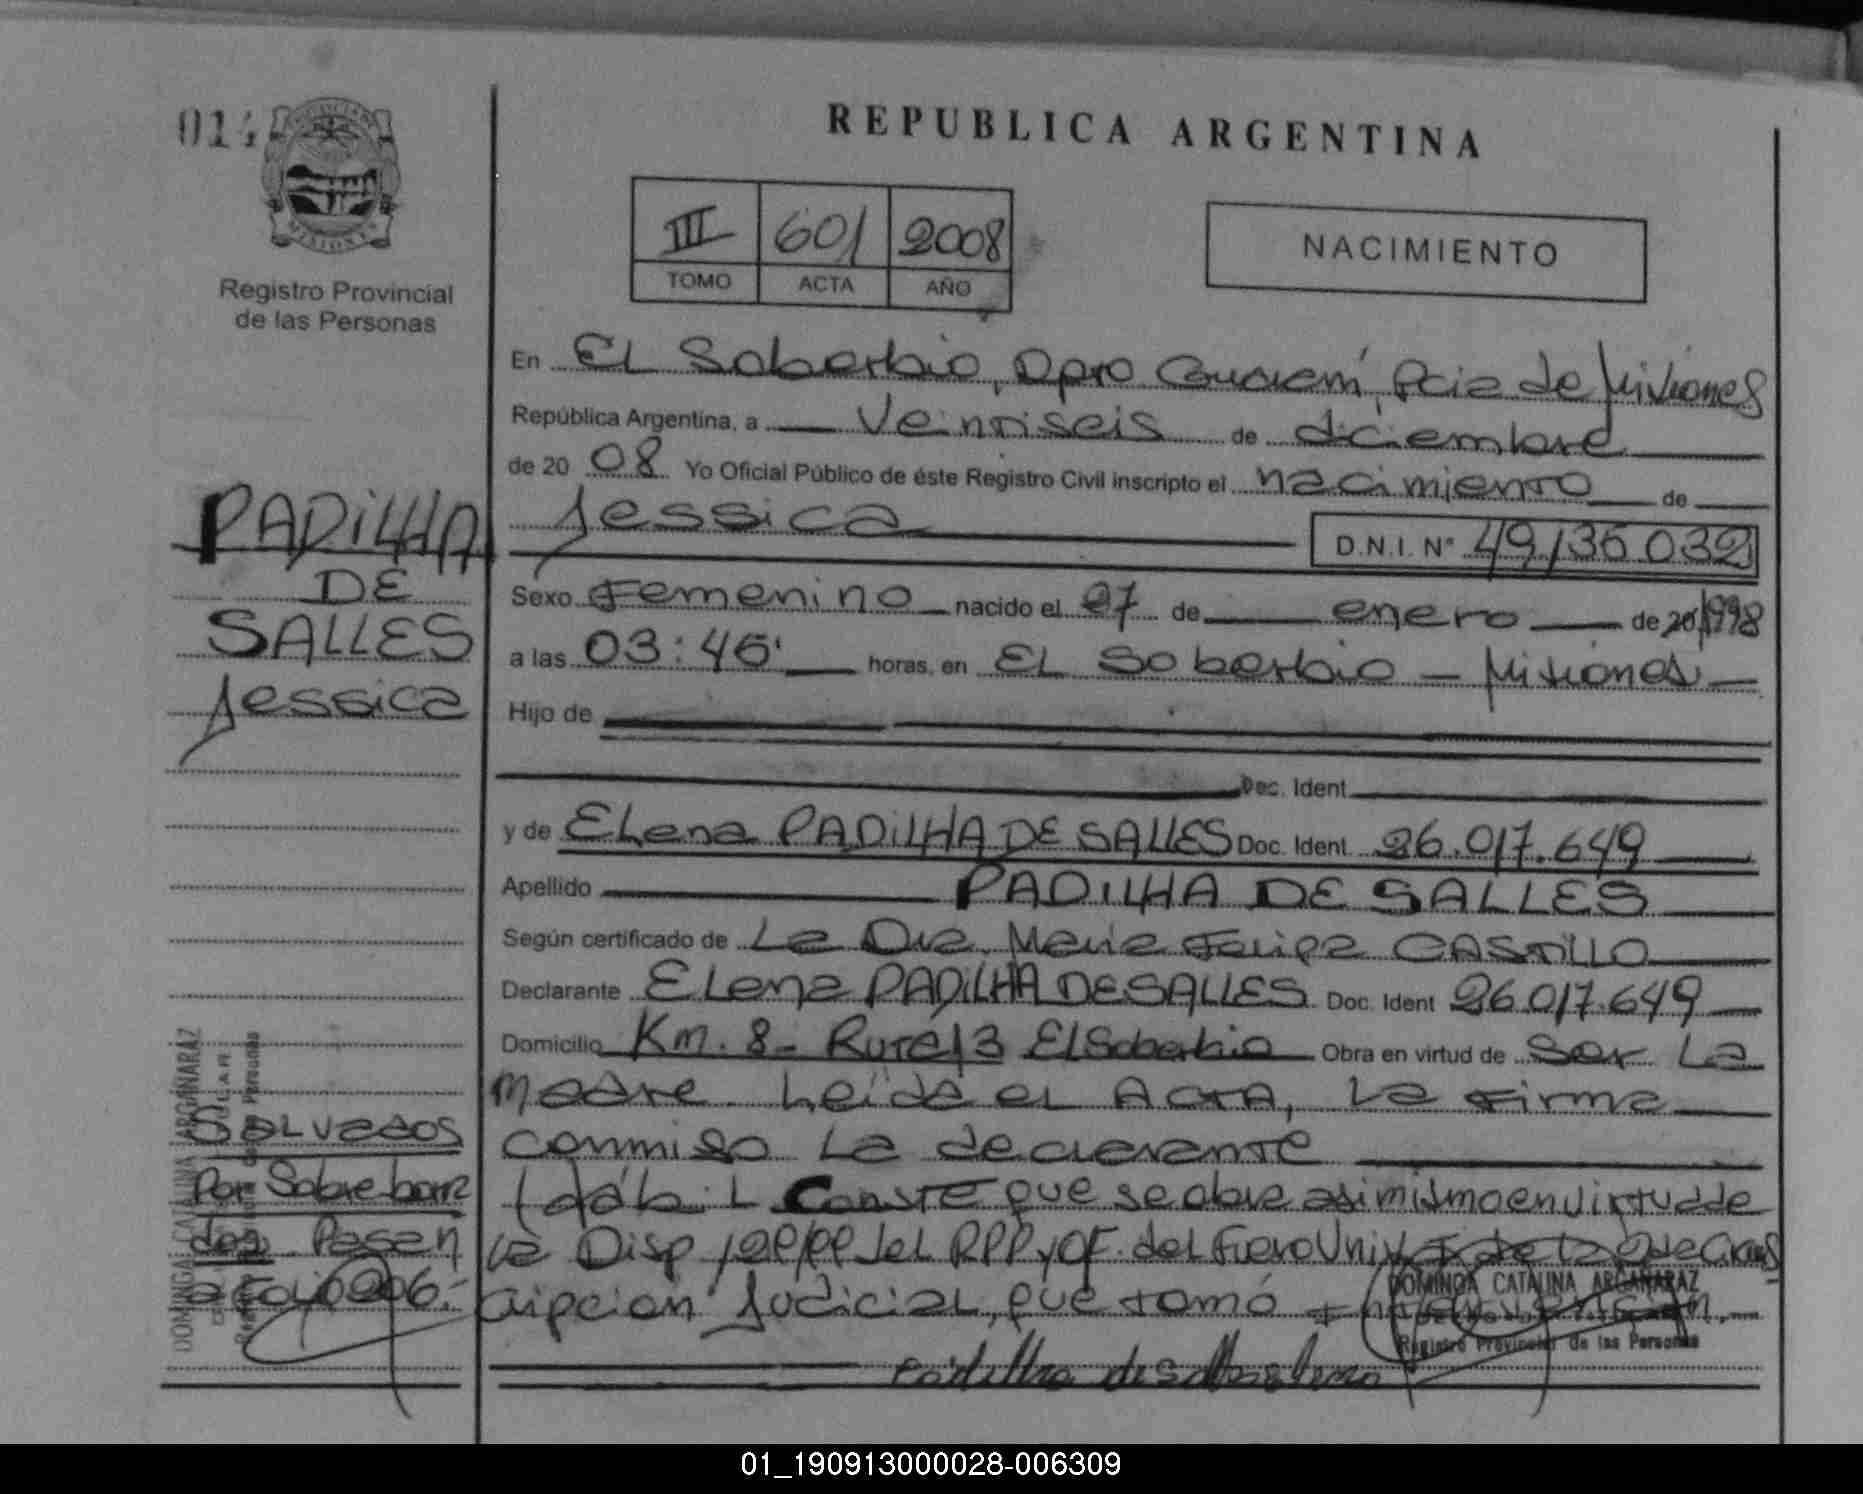 REPUBLICA ARGENTINA
014
MISIONES
Registro Provincial
de las Personas
III 601 2008
TOMO ACTA AÑO
NACIMIENTO
En EL Soberbio, Dpto Guaraní, Pcia de Misiones
República Argentina, a Veintiseis de diciembre
de 20 08 Yo Oficial Público de éste Registro Civil inscripto el nacimiento de
Jessica D.N.I. Nº 49.136.032
Sexo Femenino nacido el 27 de enero de 1998
a las 03:45' horas, en EL Soberbio - Misiones
Hijo de
Doc. Ident.
y de Elena PADILHA DE SALLES Doc. Ident. 26.017.649
Apellido PADILHA DE SALLES
Según certificado de La Dra. Maria Felipa CASTILLO
Declarante Elena PADILHA DE SALLES Doc. Ident 26.017.649
Domicilio Km. 8 - Ruta 13 El Soberbio Obra en virtud de Ser La
madre Leída el ACTA, La Firma
conmigo La declarante
Conste que se obra asimismo en virtud de
La Disp del RPP
cripcion Judicial, que tomó
Padilha de Salles Elena
DOMINGA CATALINA ARGAÑARAZ
Registro Provincial de las Personas
PADILHA
DE
SALLES
Jessica
Salvados
Por Sobre borra
dos. Pasan
a Folio 206.-
DOMINGA CATALINA ARGAÑARAZ
01_190913000028-006309